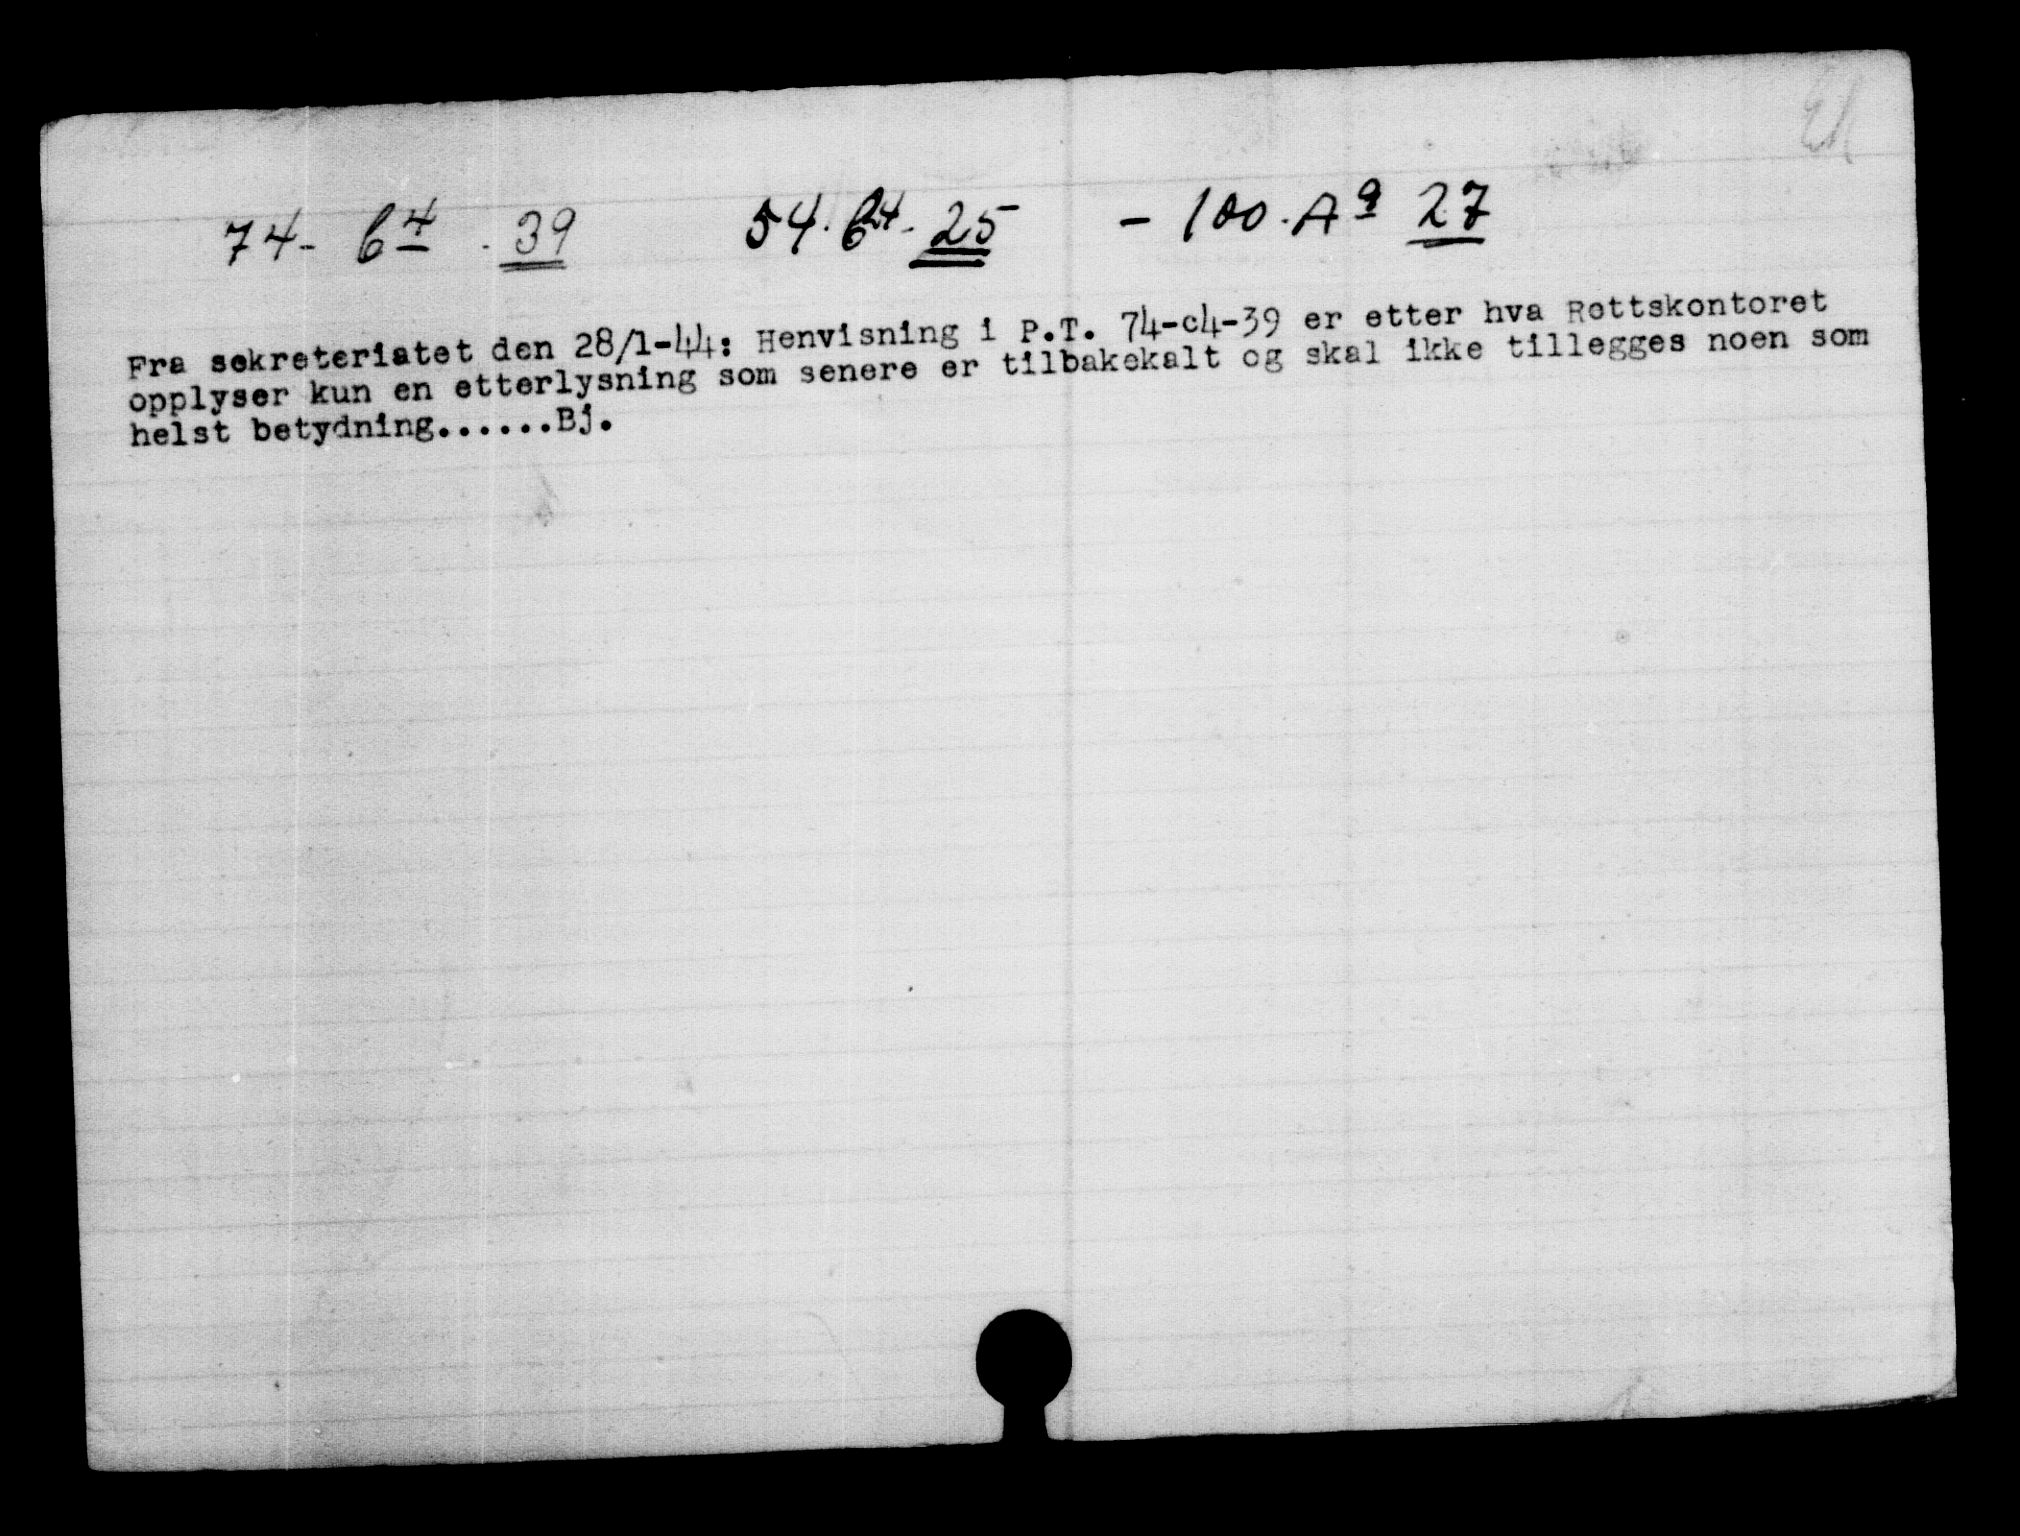 74 - 6 4 . 39 54. 64. 25 - 100. A 9 27
Fra sekreteriatet den 28/1-44: Henvisning i P.T. 74-c4-39 er etter hva Rettskontoret
opplyser kun en etterlysning som senere er tilbakekalt og skal ikke tillegges noen som
helst betydning......Bj.